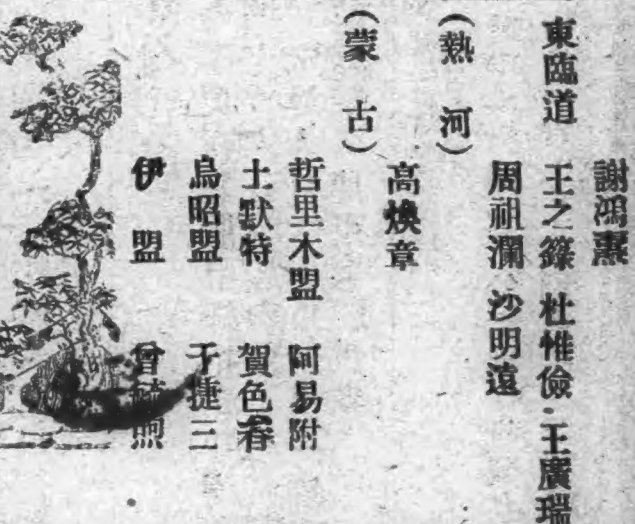 謝鴻燾
東臨道 王之籙 杜惟儉 王廣瑞
周祖瀾 沙明遠
(熱河)
高煥章
(蒙古)
哲里木盟 阿易附
土默特 賀色畚
烏昭盟 于捷三
伊盟 曾 煦